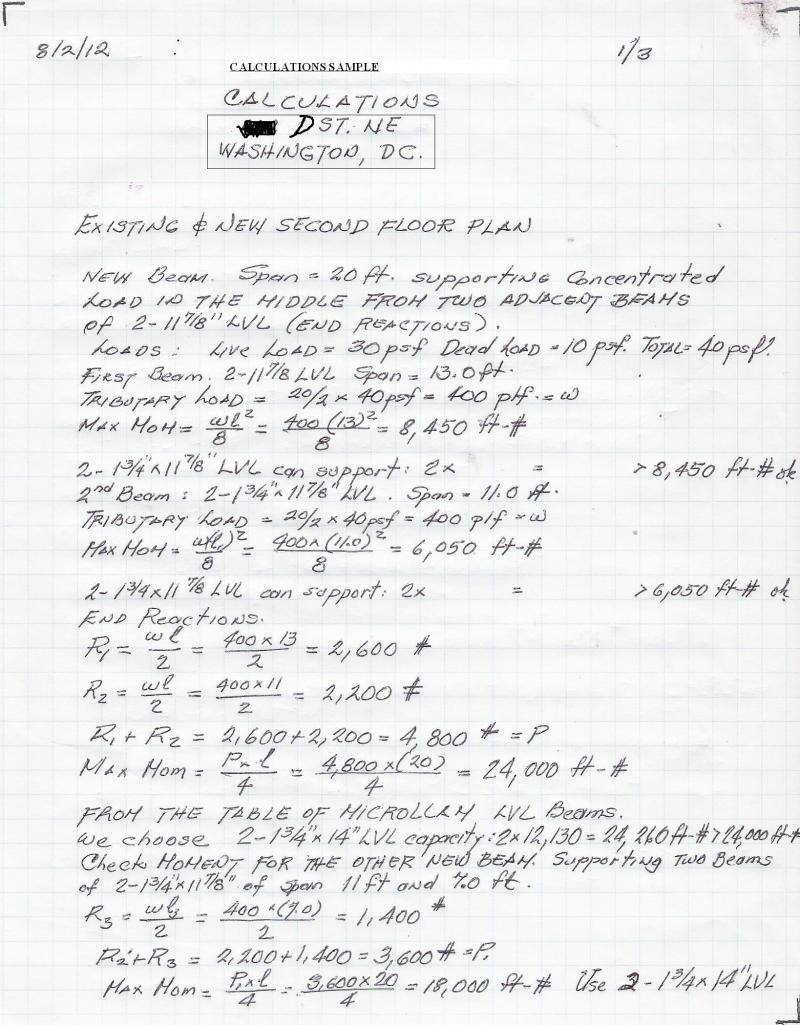 8/2/12 : 1/3
CALCULATIONS SAMPLE
CALCULATIONS
D ST. NE
WASHINGTON, DC.
EXISTING & NEW SECOND FLOOR PLAN
NEW Beam. Span = 20 ft. supporting Concentrated
LOAD IN THE MIDDLE FROM TWO ADJACENT BEAMS
of 2-11 7/8" LVL (END REACTIONS).
LOADS: Live LOAD = 30 psf Dead LOAD = 10 psf. TOTAL = 40 psf.
FIRST Beam. 2-11 7/8 LVL Span = 13.0 ft.
TRIBUTARY LOAD = 20/2 x 40 psf = 400 plf. = w
MAX MOM = wl²/8 = 400 (13)²/8 = 8,450 ft-#
2-1 3/4" x 11 7/8" LVL can support: 2x = > 8,450 ft-# ok
2nd Beam: 2-1 3/4" x 11 7/8" LVL. Span = 11.0 ft.
TRIBUTARY LOAD = 20/2 x 40 psf = 400 plf = w
MAX MOM = w(l)²/8 = 400 x (11.0)²/8 = 6,050 ft-#
2-1 3/4 x 11 7/8 LVL can support: 2x = > 6,050 ft-# ok
END Reactions.
R₁ = wl/2 = 400 x 13/2 = 2,600 #
R₂ = wl/2 = 400 x 11/2 = 2,200 #
R₁ + R₂ = 2,600 + 2,200 = 4,800 # = P
MAX Mom = P x l/4 = 4,800 x (20)/4 = 24,000 ft-#
FROM THE TABLE OF MICROLLAM LVL Beams.
we choose 2-1 3/4" x 14" LVL capacity: 2 x 12,130 = 24,260 ft-# > 24,000 ft-#
Check MOMENT FOR THE OTHER NEW BEAM. Supporting Two Beams
of 2-1 3/4" x 11 7/8" of span 11 ft and 7.0 ft.
R₃ = wl₃/2 = 400 x (7.0)/2 = 1,400 #
R₂ + R₃ = 2,200 + 1,400 = 3,600 # = P₁
MAX Mom = P₁ x l/4 = 3,600 x 20/4 = 18,000 ft-# Use 2-1 3/4 x 14" LVL